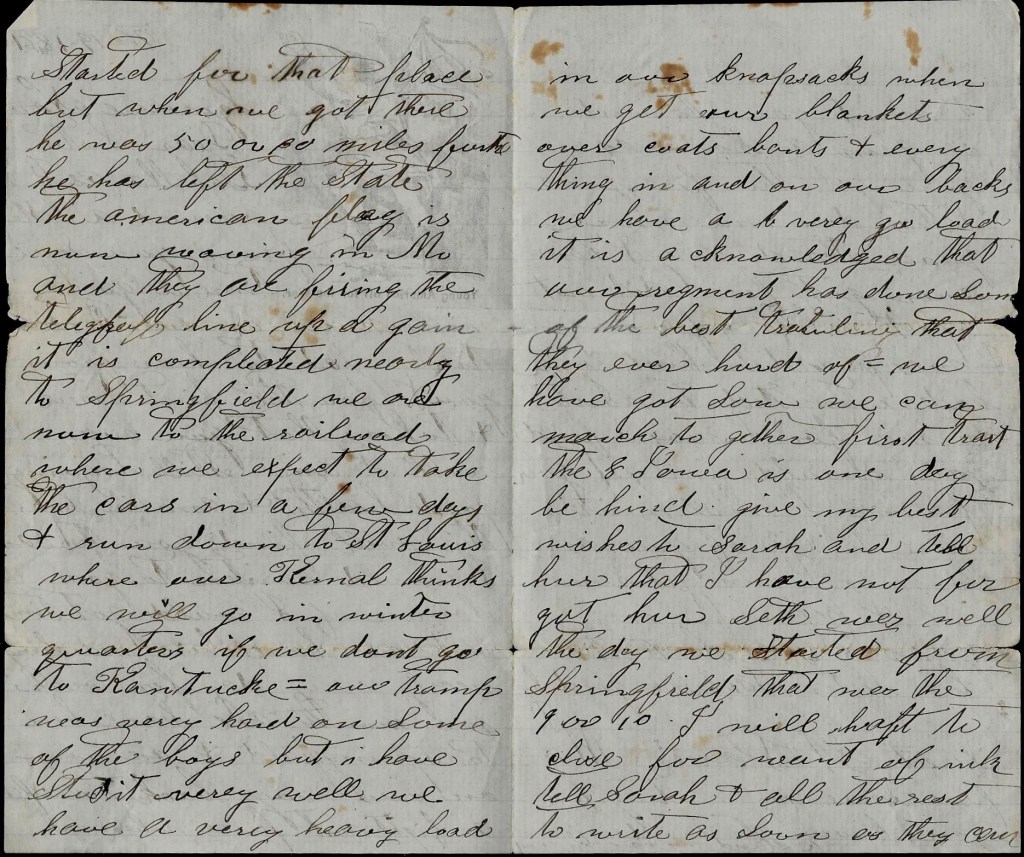 Started for that place
but when we got there
he was 50 or 60 miles furth
he has left the State
the american flag is
now waving in Mo
and they are fixing the
telegraph line up a gain
it is compleated nearly
to Springfield we are
now to the railroad
where we expect to take
the cars in a few days
& run down to St Louis
where our Kernal thinks
we will go in winter
quarters if we dont go
to Kantucke = our tramp
was verey hard on some
of the boys but i have
stud it verey well we
have a verey heavy load
in our knapsacks when
we get our blankets
over coats boots & every
thing in and on our backs
we have a verey load
it is acknowledged that
our regment has done som
of the best traviling that
they ever hurd of = we
have got so we can
march to gether first trait
the 8 Iowa is one day
be hind. give my best
wishes to Sarah and tell
hur that I have not for
got hur Seth wes well
the day we started from
Springfield that wes the
9 or 10. I will haft to
close for want of ink
tell Sarah & all the rest
to write as soon as they can